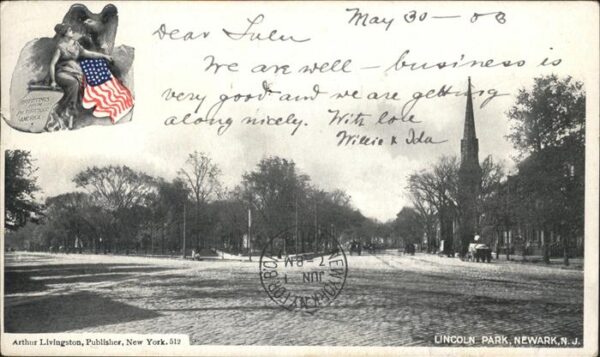 May 30 - 03
Dear Lulu
We are well - business is
very good and we are getting
along nicely. With love
Willie & Ida
GREETINGS
FROM
PICTURESQUE
AMERICA
NEW YORK
JUN 1
Arthur Livingston, Publisher, New York. 512
LINCOLN PARK, NEWARK, N.J.